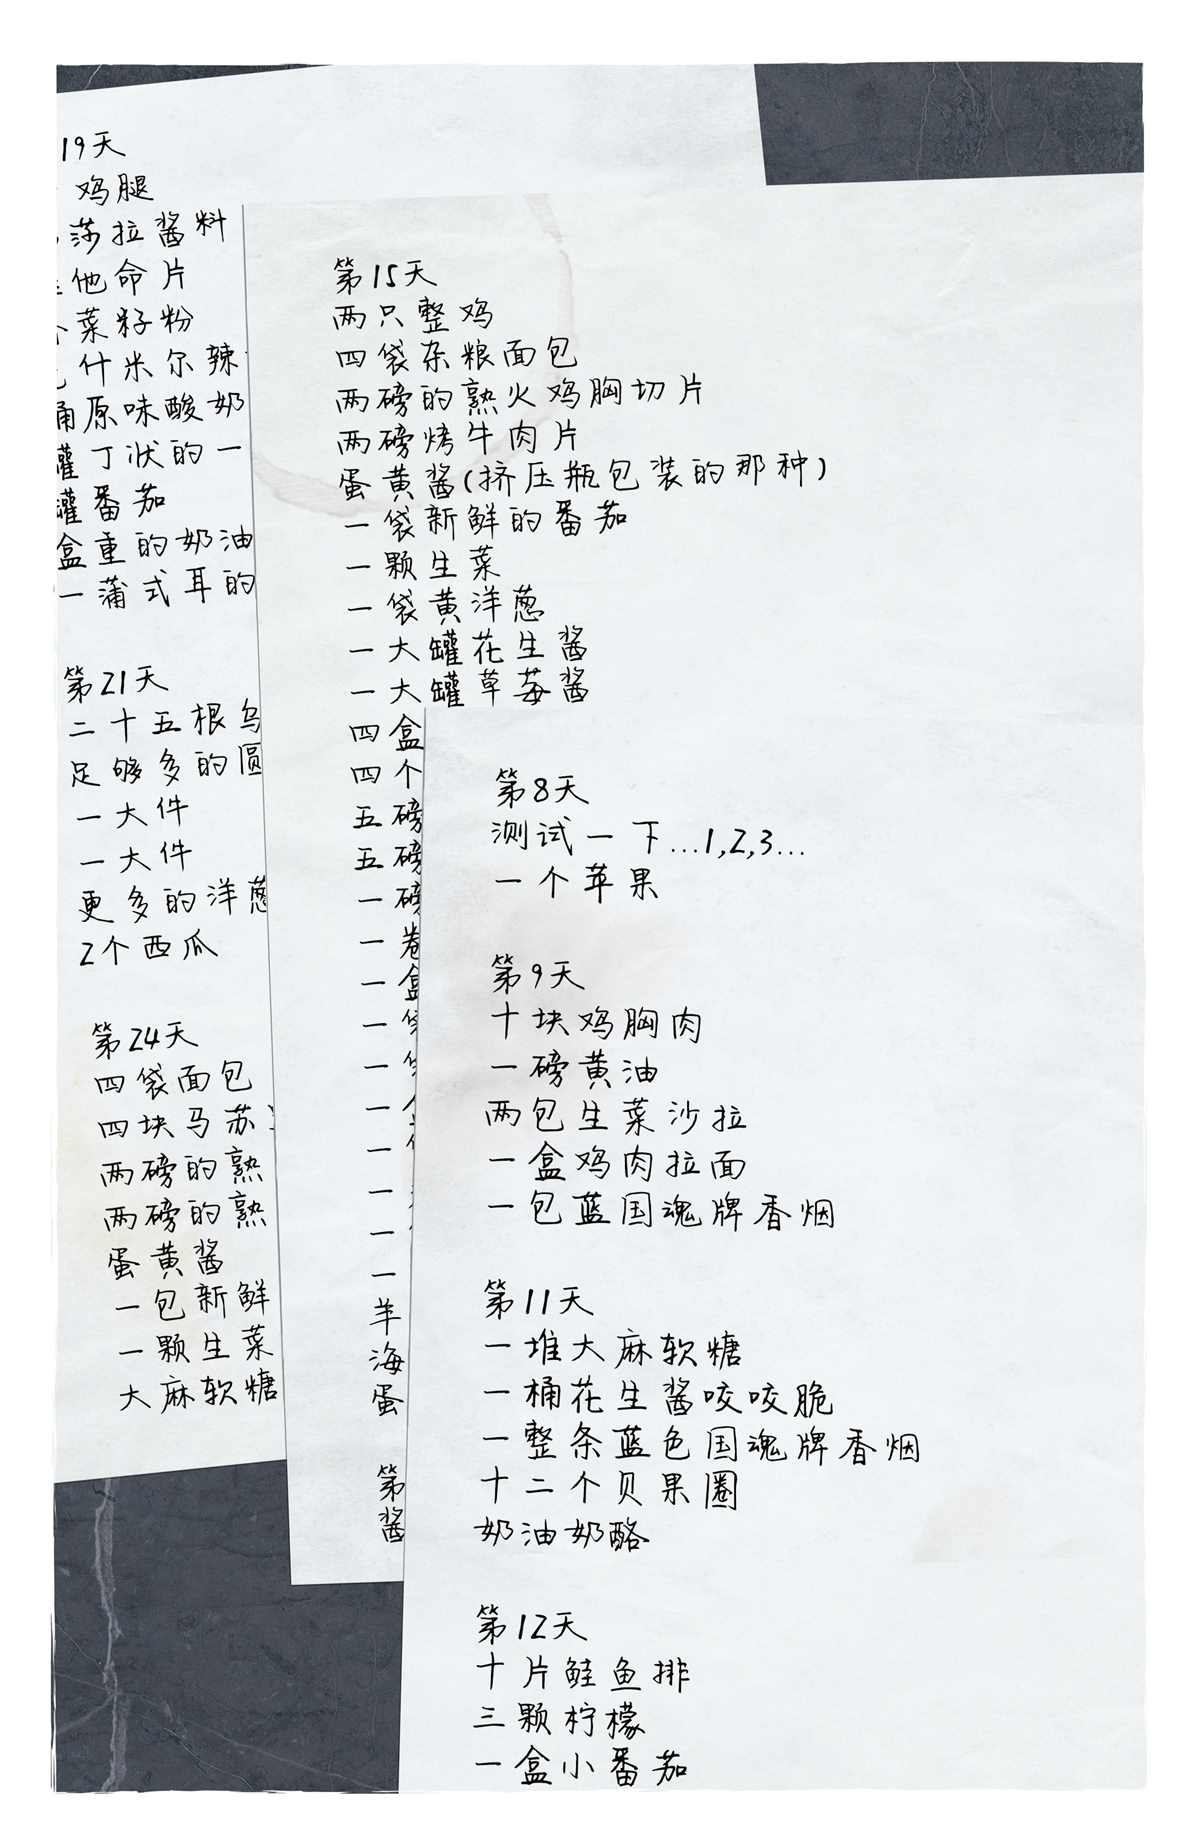 19天
鸡腿
莎拉酱料
他命片
菜籽粉
什米尔辣
桶原味酸奶
罐丁状的一
罐番茄
盒重的奶油
一蒲式耳的
第21天
二十五根乌
足够多的圆
一大件
一大件
更多的洋葱
2个西瓜
第24天
四袋面包
四块马苏
两磅的熟
两磅的熟
蛋黄酱
一包新鲜
一颗生菜
大麻软糖
第15天
两只整鸡
四袋杂粮面包
两磅的熟火鸡胸切片
两磅烤牛肉片
蛋黄酱(挤压瓶包装的那种)
一袋新鲜的番茄
一颗生菜
一袋黄洋葱
一大罐花生酱
一大罐草莓酱
四盒
四个
五磅
五磅
一磅
一卷
一盒
一袋
一
一
一
一
一
一
羊
海
蛋
第
酱
第8天
测试一下…1,2,3…
一个苹果
第9天
十块鸡胸肉
一磅黄油
两包生菜沙拉
一盒鸡肉拉面
一包蓝国魂牌香烟
第11天
一堆大麻软糖
一桶花生酱咬咬脆
一整条蓝色国魂牌香烟
十二个贝果圈
奶油奶酪
第12天
十片鲑鱼排
三颗柠檬
一盒小番茄